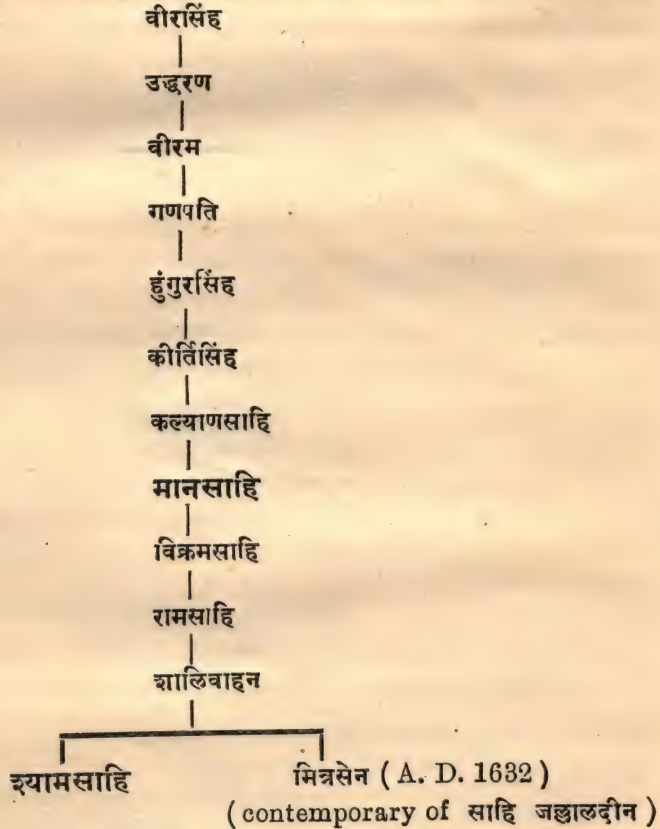 वीरसिंह
उद्धरण
वीरम
गणपति
हुंगुरसिंह
कीर्तिसिंह
कल्याणसाहि
मानसाहि
विक्रमसाहि
रामसाहि
शालिवाहन
श्यामसाहि मित्रसेन ( A. D. 1632 )
( contemporary of साहि जल्लालदीन )